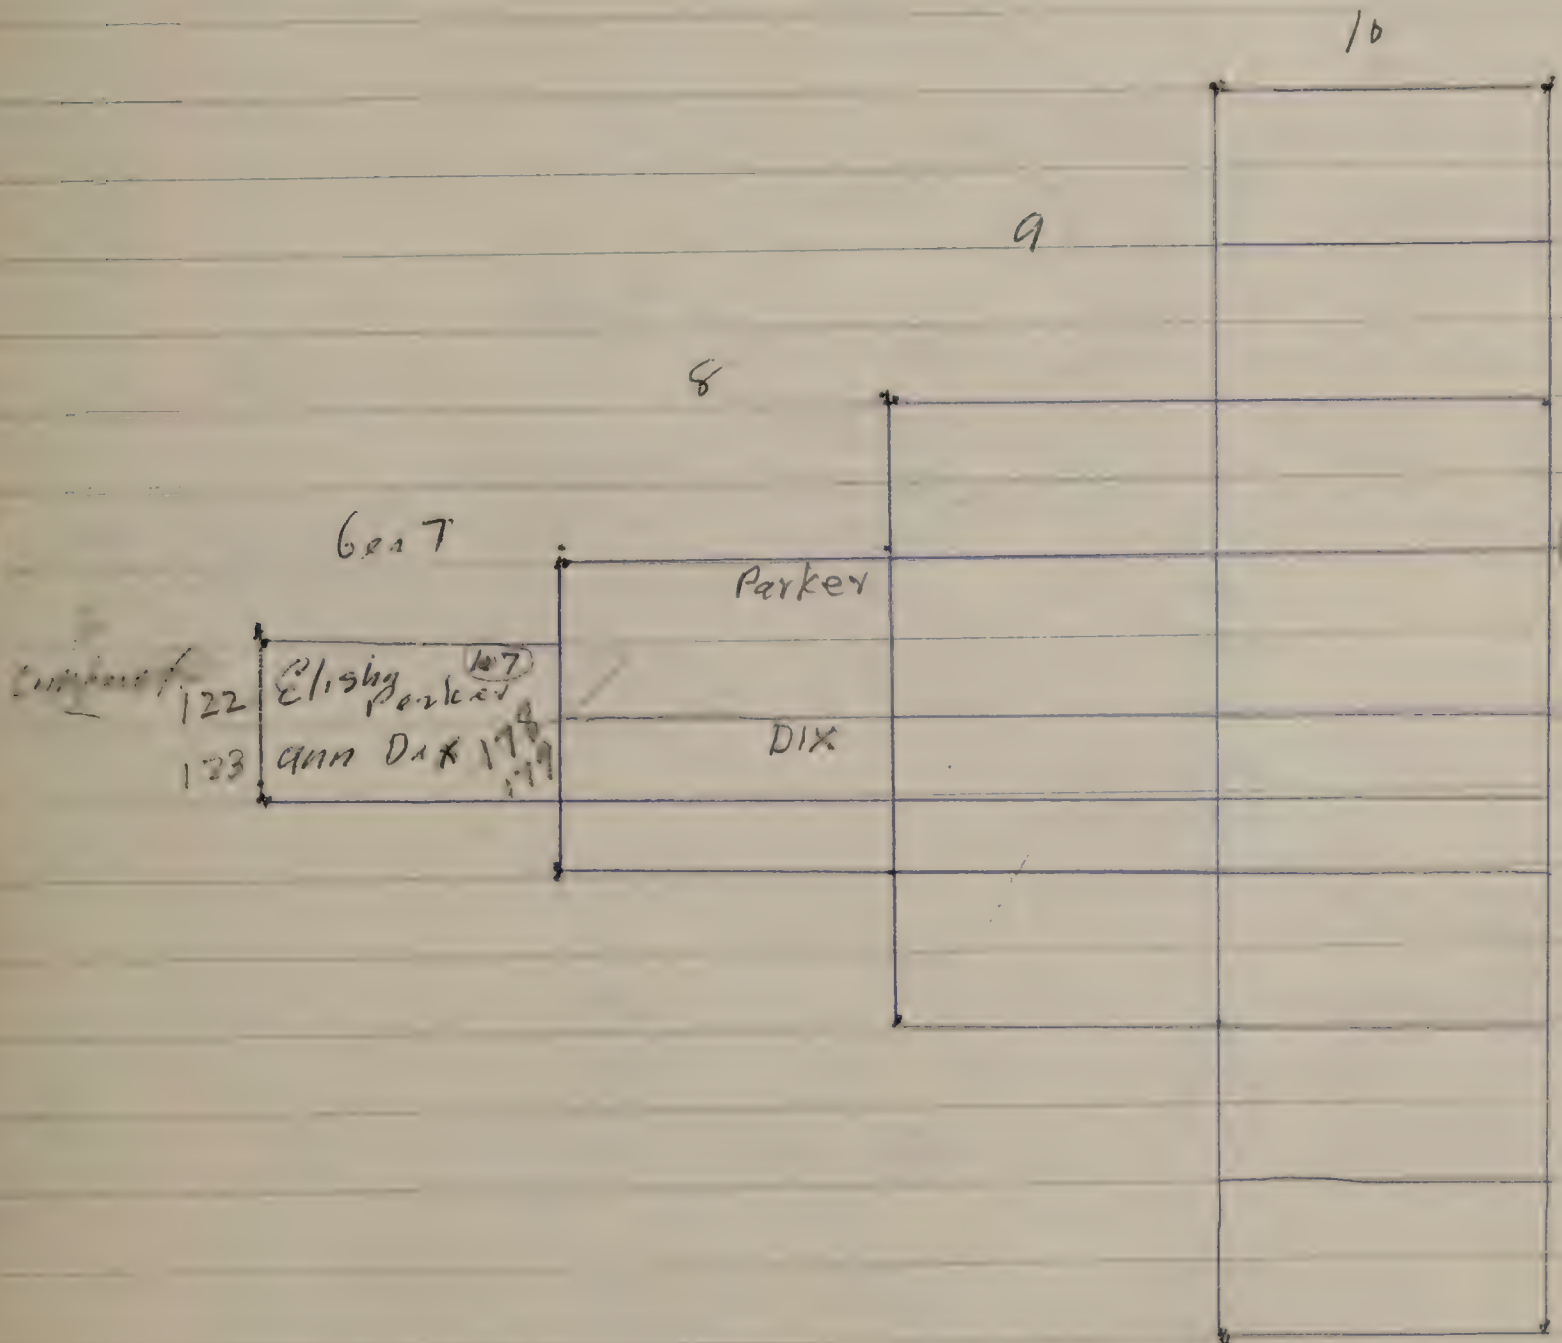 10
9
8
Gen 7
Parker
122 Elisha Parker
123 ann Dix 178
179
DIX